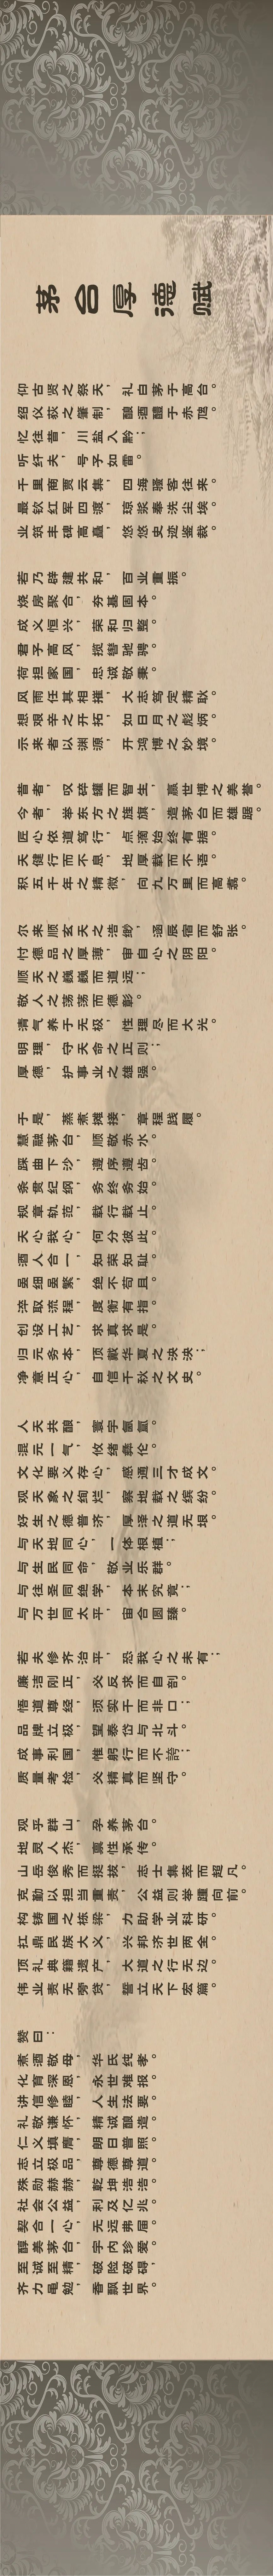 茅台厚德赋
仰古贤之祭天，礼自茅于高台。
绍仪荻之肇制，酿酒醴于赤虺。
忆往昔，川盐入黔；
听纤夫，号子如雷。
千里商贾云集，四海骚客往来。
最钦红军四渡，琼浆奉洗尘埃。
业筑丰碑高矗，悠悠史迹鉴裁。
若乃辟建共和，百业重振。
烧房聚合，夯基固本。
成义恒兴，荣和归整。
君子高风，揽辔驰骋。
荷担家国，忠诚敬秉。
风雨任其相摧，大志笃定精耿。
想艰辛之开拓，如日月之彪炳。
示来者以渊源，开鸿博之妙境。
昔者，叹碎罐而智生，赢世博之美誉。
今者，举东方之旌旗，造茅台而雄踞。
匠心依道笃行，点滴始终有据。
天健行而不息，地厚载而不语。
积五千年之精微，向九万里而高翥。
尔来顺玄天之浩渺，涵辰宿而舒张。
付德品之厚薄，审自心之阴阳。
顺天之巍巍而道远；
敬人之荡荡而德彰。
清气养于无极，性理尽而大光。
明理，守天命之正则；
厚德，护事业之雄强。
于是，蒸煮摊接，章程践履。
慧融茅台，顺敬赤水。
踩曲下沙，遵序遵齿。
条贯纪纲，务终务始。
规章轨范，载行载止。
天心我心，何分彼此。
酒人合一，知荣知耻。
虽细虽繁，绝不苟且。
淬取流程，度衡有指。
创设工艺，求真求是。
归元务本，顶戴华夏之泱泱；
净意正心，自信千秋之文史。
人天共酿，寰宇氤氲。
混元一气，攸绪彝伦。
文化要义存心，感通三才成文。
观天象之绚烂，察地载之缤纷。
好生之德普济，厚泽之道无垠。
与天地同心，一体根植；
与生民同命，敬业乐群。
与往圣同绝学，本末究竟；
与万世同太平，宙合圆臻。
若夫修齐治平，恐我心之未有；
廉洁刚正，必反求而自剖。
悟道尊经，须实干而非口；
品牌立极，望泰岱与北斗。
成事利国，惟躬行而不誇；
质量考检，必精真而坚守。
观乎群山，孕养茅台。
地灵人杰，禀性承传。
山岳俊秀而挺拔，志士集萃而超凡。
克勤以担当重责，公益则举踵向前。
构铸国之栋梁，力助学业科研。
扛鼎民族大义，兴邦济世两全。
顶礼典籍遗产，大道之行无边。
伟业责无旁贷，誓立天下宏篇。
赞曰：
煮酒敬母，华氏纯孝。
化育深恩，永世难报。
讲信修睦，人生法要。
礼敬谦怀，精诚酿造。
仁义填膺，朗日普照。
志立极品，尊德尊道。
殊勋赫赫，乾坤浩浩。
社会公益，利及亿兆。
契合一心，无远弗届。
醇美茅台，宇内珍爱。
至诚至精，破险破碍，
齐力黾勉，香飘世界。